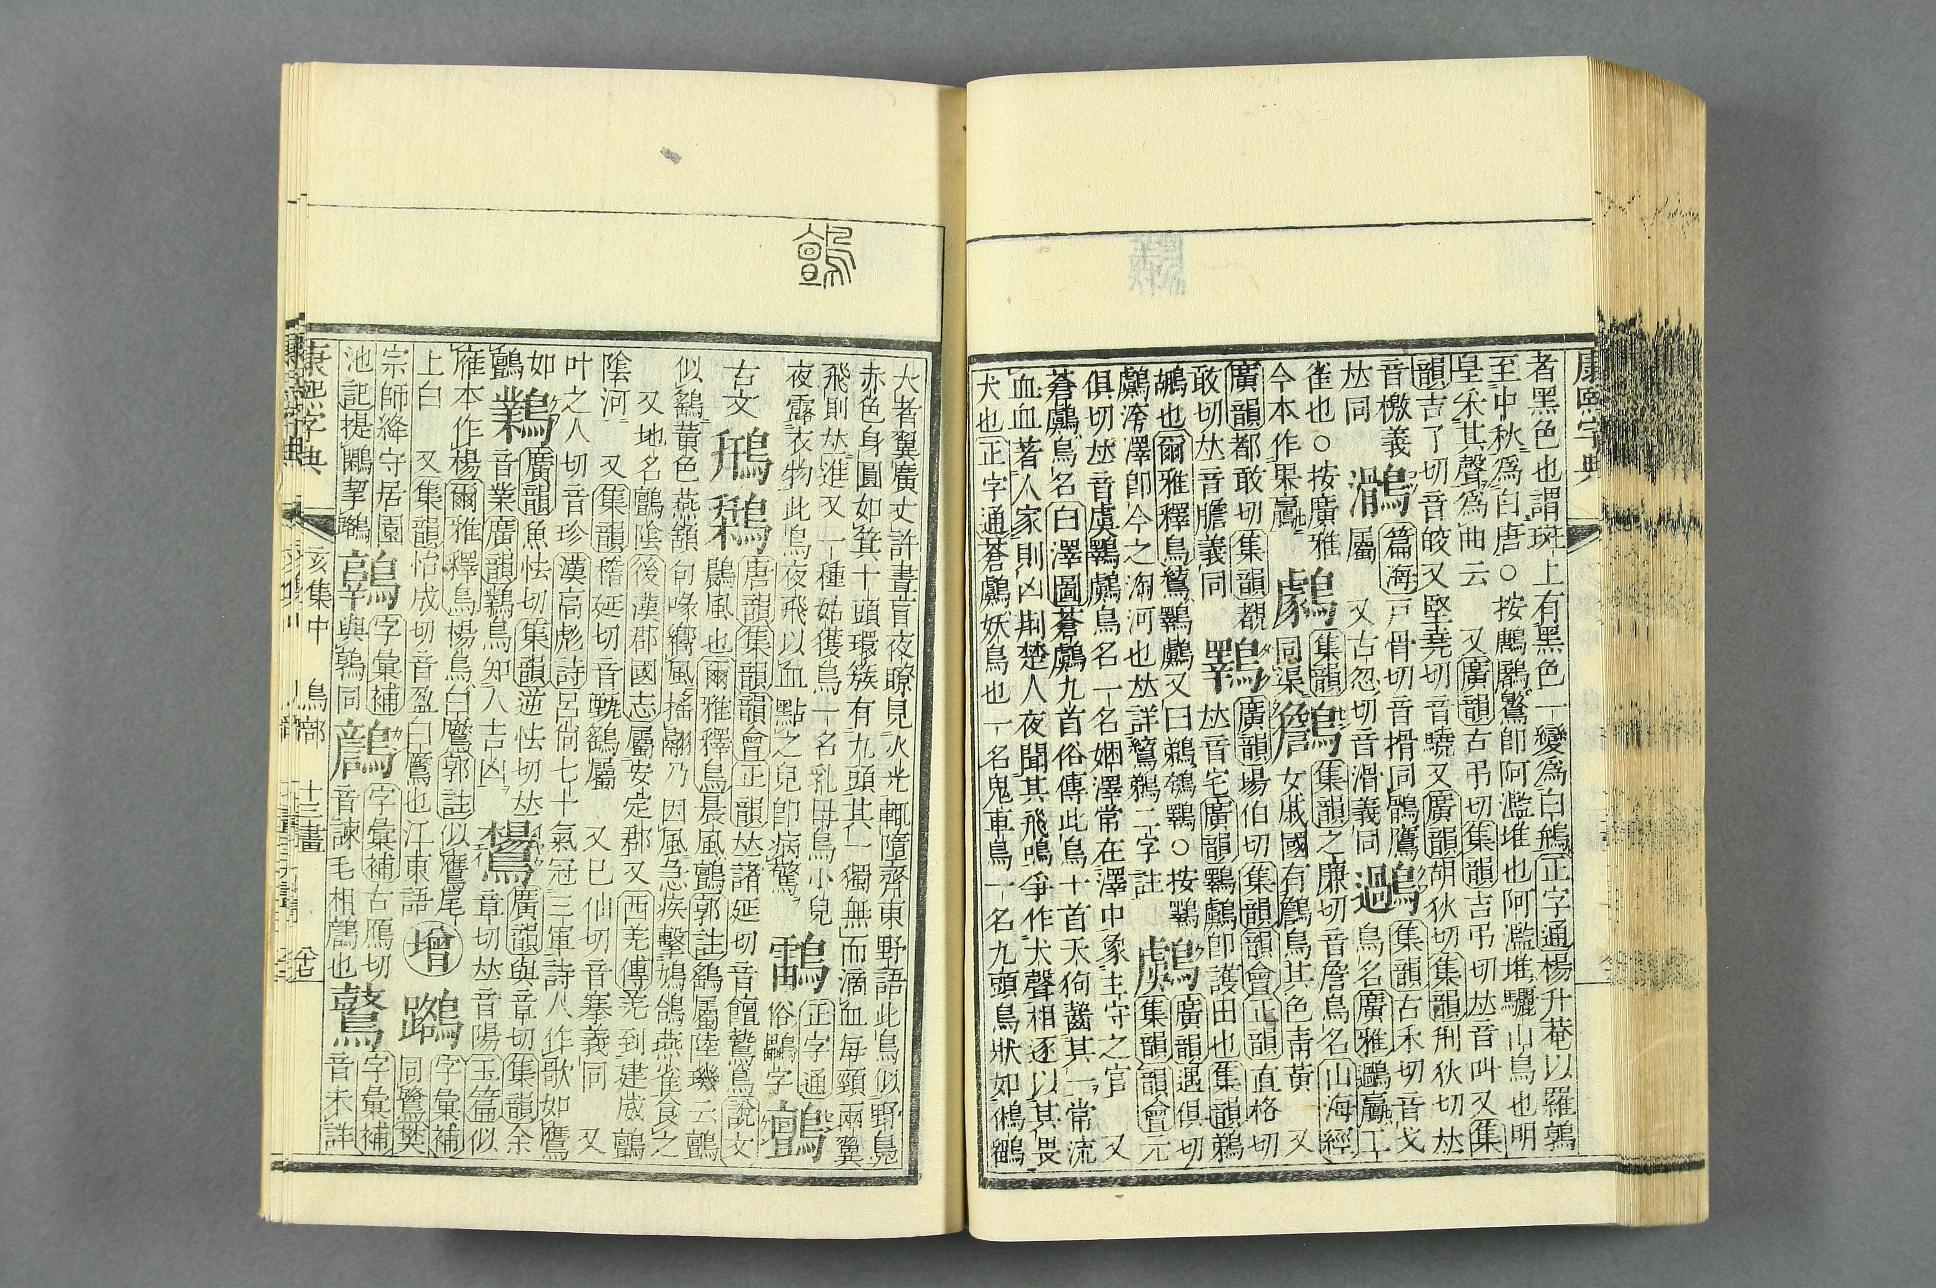 康熙字典
者黑色也謂斑上有黑色一變爲白鵵正字通楊升菴以羅鶉
至中秋爲白唐○按鷓鷓鷩卽阿濫堆也阿濫堆驪山鳥也明
皇采其聲爲曲云 又廣韻古弔切集韻吉弔切𠀤音叫又集
韻吉了切音皎又堅堯切音曉又廣韻胡狄切集韻荆狄切𠀤
音檄義
𠀤同
鶻屬 又古忽切音滑義同
篇海戸骨切音搰同鶻鷹
集韻古禾切音戈
鳥名廣雅鷑鸁工
雀也○按廣雅
今本作果鸁
同渠
集韻
集韻之廉切音詹鳥名山海經
女戚國有鳥其色靑黃 又
廣韻都敢切集韻覩
敢切𠀤音膽義同
廣韻場伯切集韻韻會正韻直格切
𠀤音宅廣韻鸅鸆卽護田也集韻鵜
鶘也爾雅釋鳥鶭鸅鸆又曰鵜鴮鸅○按鸅
鸆洿澤卽今之淘河也𠀤詳鶭鵜二字註
鸆
廣韻遇俱切
集韻韻會元
俱切𠀤音虞鸅鸆鳥名一名婟澤常在澤中象主守之官 又
蒼鸆鳥名白澤圖蒼鸆九首俗傳此鳥十首天狗齧其一常流
血血著人家則凶荆楚人夜聞其飛鳴爭作犬聲相逐以其畏
犬也正字通蒼鸆妖鳥也一名鬼車鳥一名九頭鳥狀如鵂鶹
大者翼廣丈許晝盲夜瞭見火光輒墮齊東野語此鳥似野鳧
赤色身圓如箕十頭環簇有九頭其一獨無而滴血每頸兩翼
飛則𠀤進又一種姑獲鳥一名乳母鳥小兒
夜露衣物此鳥夜飛以血點之兒卽病驚
正字通
俗鸓字
鸇
古文
唐韻集韻韻會正韻𠀤諸延切音饘鷙鳥說文
鷐風也爾雅釋鳥晨風鸇郭註鷂屬陸璣云鸇
似鷂黃色燕頷句喙嚮風搖翮乃因風急疾擊鳩鴿燕雀食之
又地名鸇陰後漢郡國志屬安定郡又西羌傳羌到建威鸇
陰河 又集韻稽延切音甄鷂屬 又巳仙切音蹇義同 又
叶之人切音珍漢高彪詩呂尙七十氣冠三軍詩人作歌如鷹
如
鸇
鸈
廣韻魚怯切集韻逆怯切𠀤
音業廣韻鸈鳥知人吉凶
鸉
廣韻與章切集韻余
章切𠀤音陽玉篇似
雁本作楊爾雅釋鳥楊鳥白鷢郭註似鷹尾
上白 又集韻怡成切音盈白鷢也江東語
增
字彙補
同鷺樊
宗師絳守居園
池記提鷴挈鷺
字彙補
與鶉同
字彙補古鴈切
音諫毛相鶬也
字彙補
音未詳
康熙字典
亥集中 鳥部 十三畫